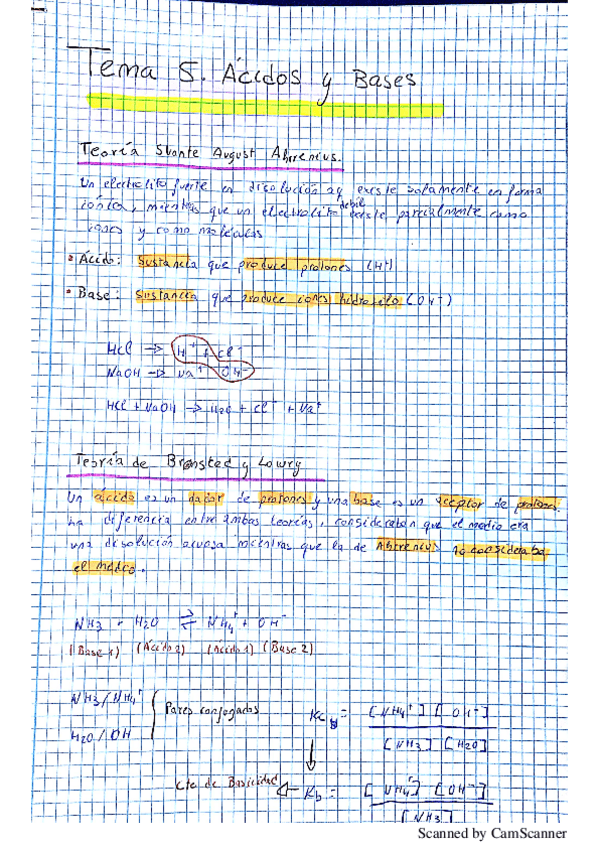 Tema 5. Ácidos y Bases
Teoría Svante August Ahrrenius.
Un electrolito fuerte en disolución aq existe solamente en forma
iónica, mientras que un electrolito débil existe parcialmente como
iones y como moléculas
• Ácido: Sustancia que produce protones (H⁺)
• Base: Sustancia que produce iones hidroxilo (OH⁻)
HCl → H⁺ + Cl⁻
NaOH → Na⁺ OH⁻
HCl + NaOH → H2O + Cl⁻ + Na⁺
Teoría de Bronsted y Lowry
Un ácido es un dador de protones y una base es un aceptor de protones.
La diferencia entre ambas teorías, consideraban que el medio era
una disolución acuosa mientras que la de Ahrrenius no consideraba
el medio.
NH3 + H2O ⇌ NH4⁺ + OH⁻
(Base 1) (Ácido 2) (Ácido 1) (Base 2)
NH3/NH4⁺
H2O/OH
Pares conjugados
= [NH4⁺] [OH⁻]
[NH3] [H2O]
Cte de Basicidad ← Kb = [NH4⁺] [OH⁻]
[NH3]
Scanned by CamScanner